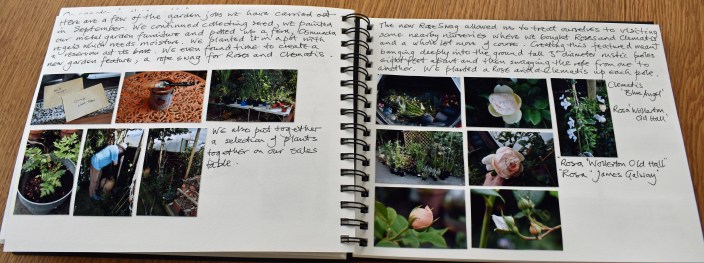 Here are a few of the garden jobs we have carried out
in September. We continued collecting seed, we painted
our metal garden furniture and potted up a fern, Osmunda
regalis which needs moisture. We planted it in a pot with
a reservoir at its base. We even found time to create a
new garden feature, a rope swag for Roses and Clematis.
We also put together
a selection of plants
together on our sales
table.
The new Rope Swag allowed us to treat ourselves to visiting
some nearby nurseries where we bought Roses and Clematis
and a whole lot more of course. Creating this feature meant
banging deeply into the ground tall 3" diameter rustic poles
eight feet apart and then swagging the rope from one to
another. We planted a Rose and a Clematis up each pole.
Clematis
"Blue Angel"
Rosa "Wollerton
Old Hall"
"Rosa "Wollerton Old Hall"
"Rosa "James Galway"